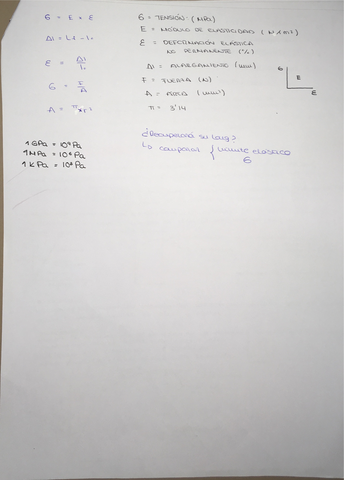 σ = E × ε
Δl = Lf - lo
ε = Δl / lo
σ = F / A
A = π × r²
σ = TENSIÓN (MPa)
E = MÓDULO DE ELASTICIDAD (N/m²)
ε = DEFORMACIÓN ELÁSTICA
NO PERMANENTE (%)
Δl = ALARGAMIENTO (mm)
F = FUERZA (N)
A = ÁREA (mm²)
π = 3'14
σ
E
ε
1 GPa = 10⁹ Pa
1 MPa = 10⁶ Pa
1 KPa = 10³ Pa
¿Recuperará su long?
↳ comparar { límite elástico
σ